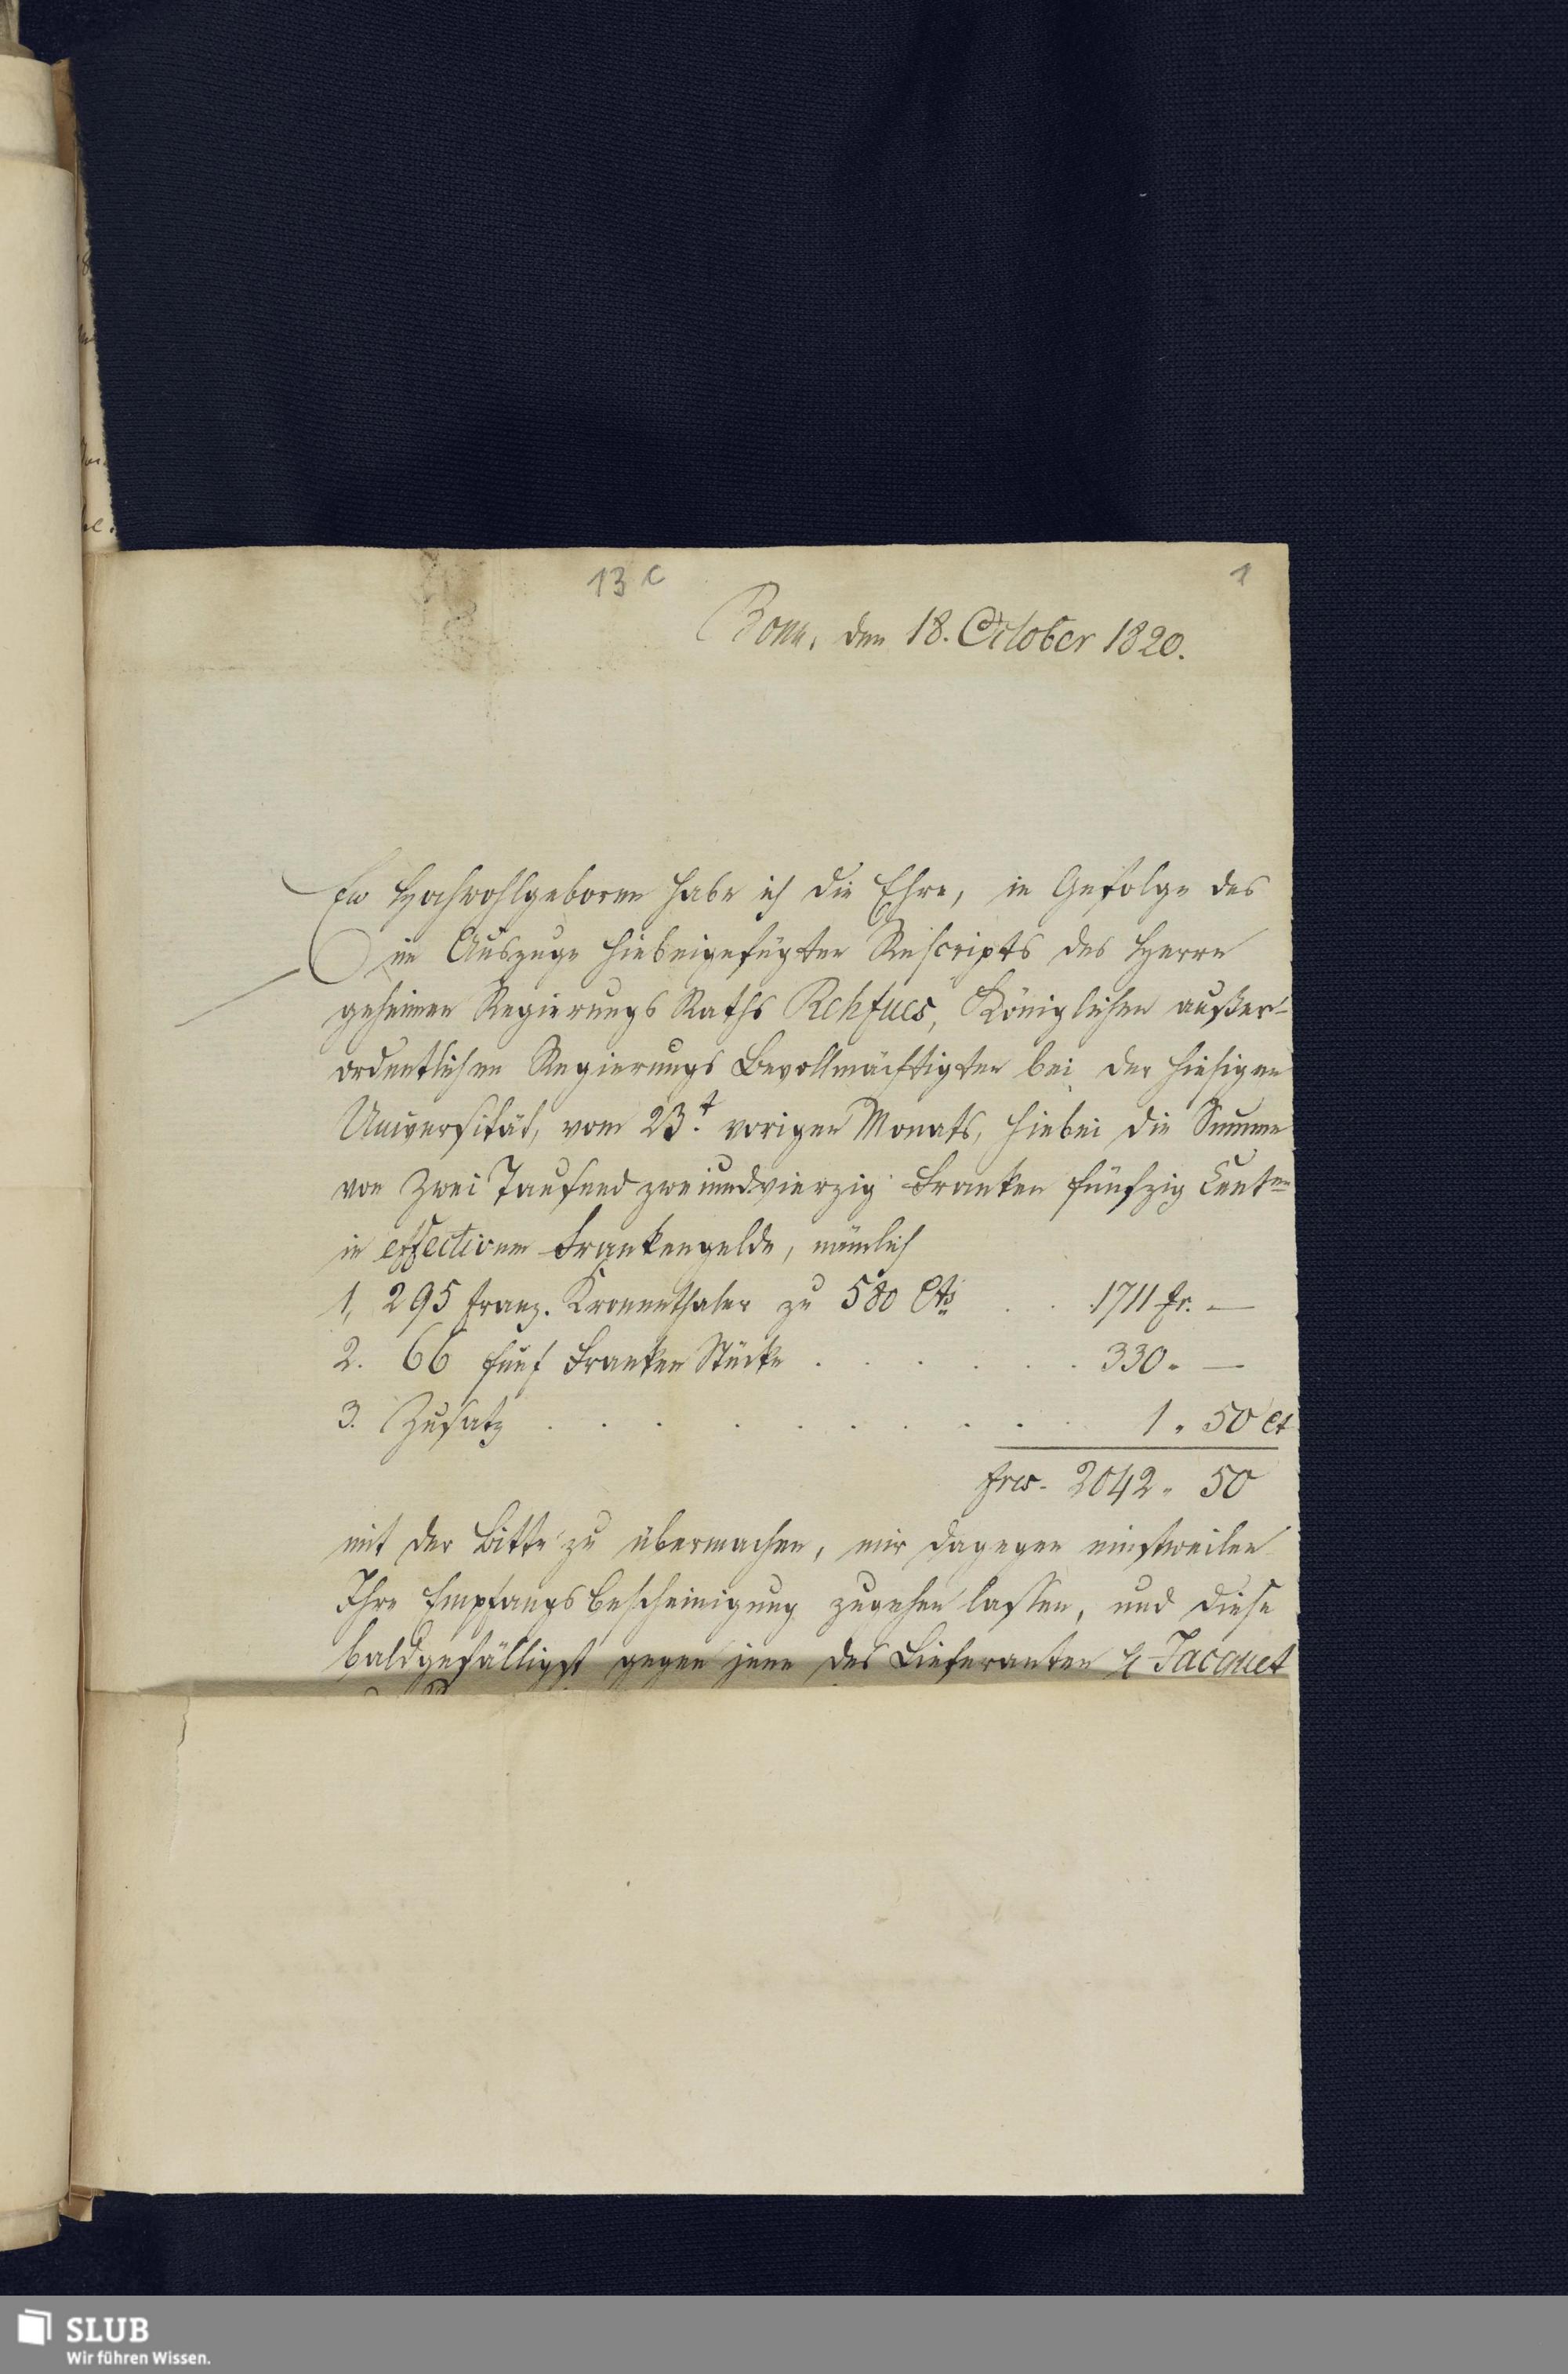 13 c
1
Bonn, den 18. October 1820.
Ew Hochwohlgeboren habe ich die Ehre, in Gefolge des
im Auszuge hiebeigefügten Rescripts des Herrn
geheimen Regierungs Raths Rehfues, Königlichen außer-
ordentlichen Regierungs Bevollmächtigten bei der hiesigen
Universität, vom 23t vorigen Monats, hiebei die Summe
von Zwei Tausend zweiundvierzig Franken fünfzig Centen
in effectivem Frankengelde, nämlich
1, 295 franz. Kronenthaler zu 580 Cts . . 1711 fr. —
2. 66 fünf Franken Stücke . . . . . 330. —
3. Zusatz . . . . . . . . 1. 50 Ct
frcs. 2042. 50
mit der Bitte zu übermachen, mir dagegen einstweilen
Ihre Empfangsbescheinigung zugehen lassen, und diese
baldgefälligst gegen jene des Lieferanten H Jacquet
SLUB
Wir führen Wissen.